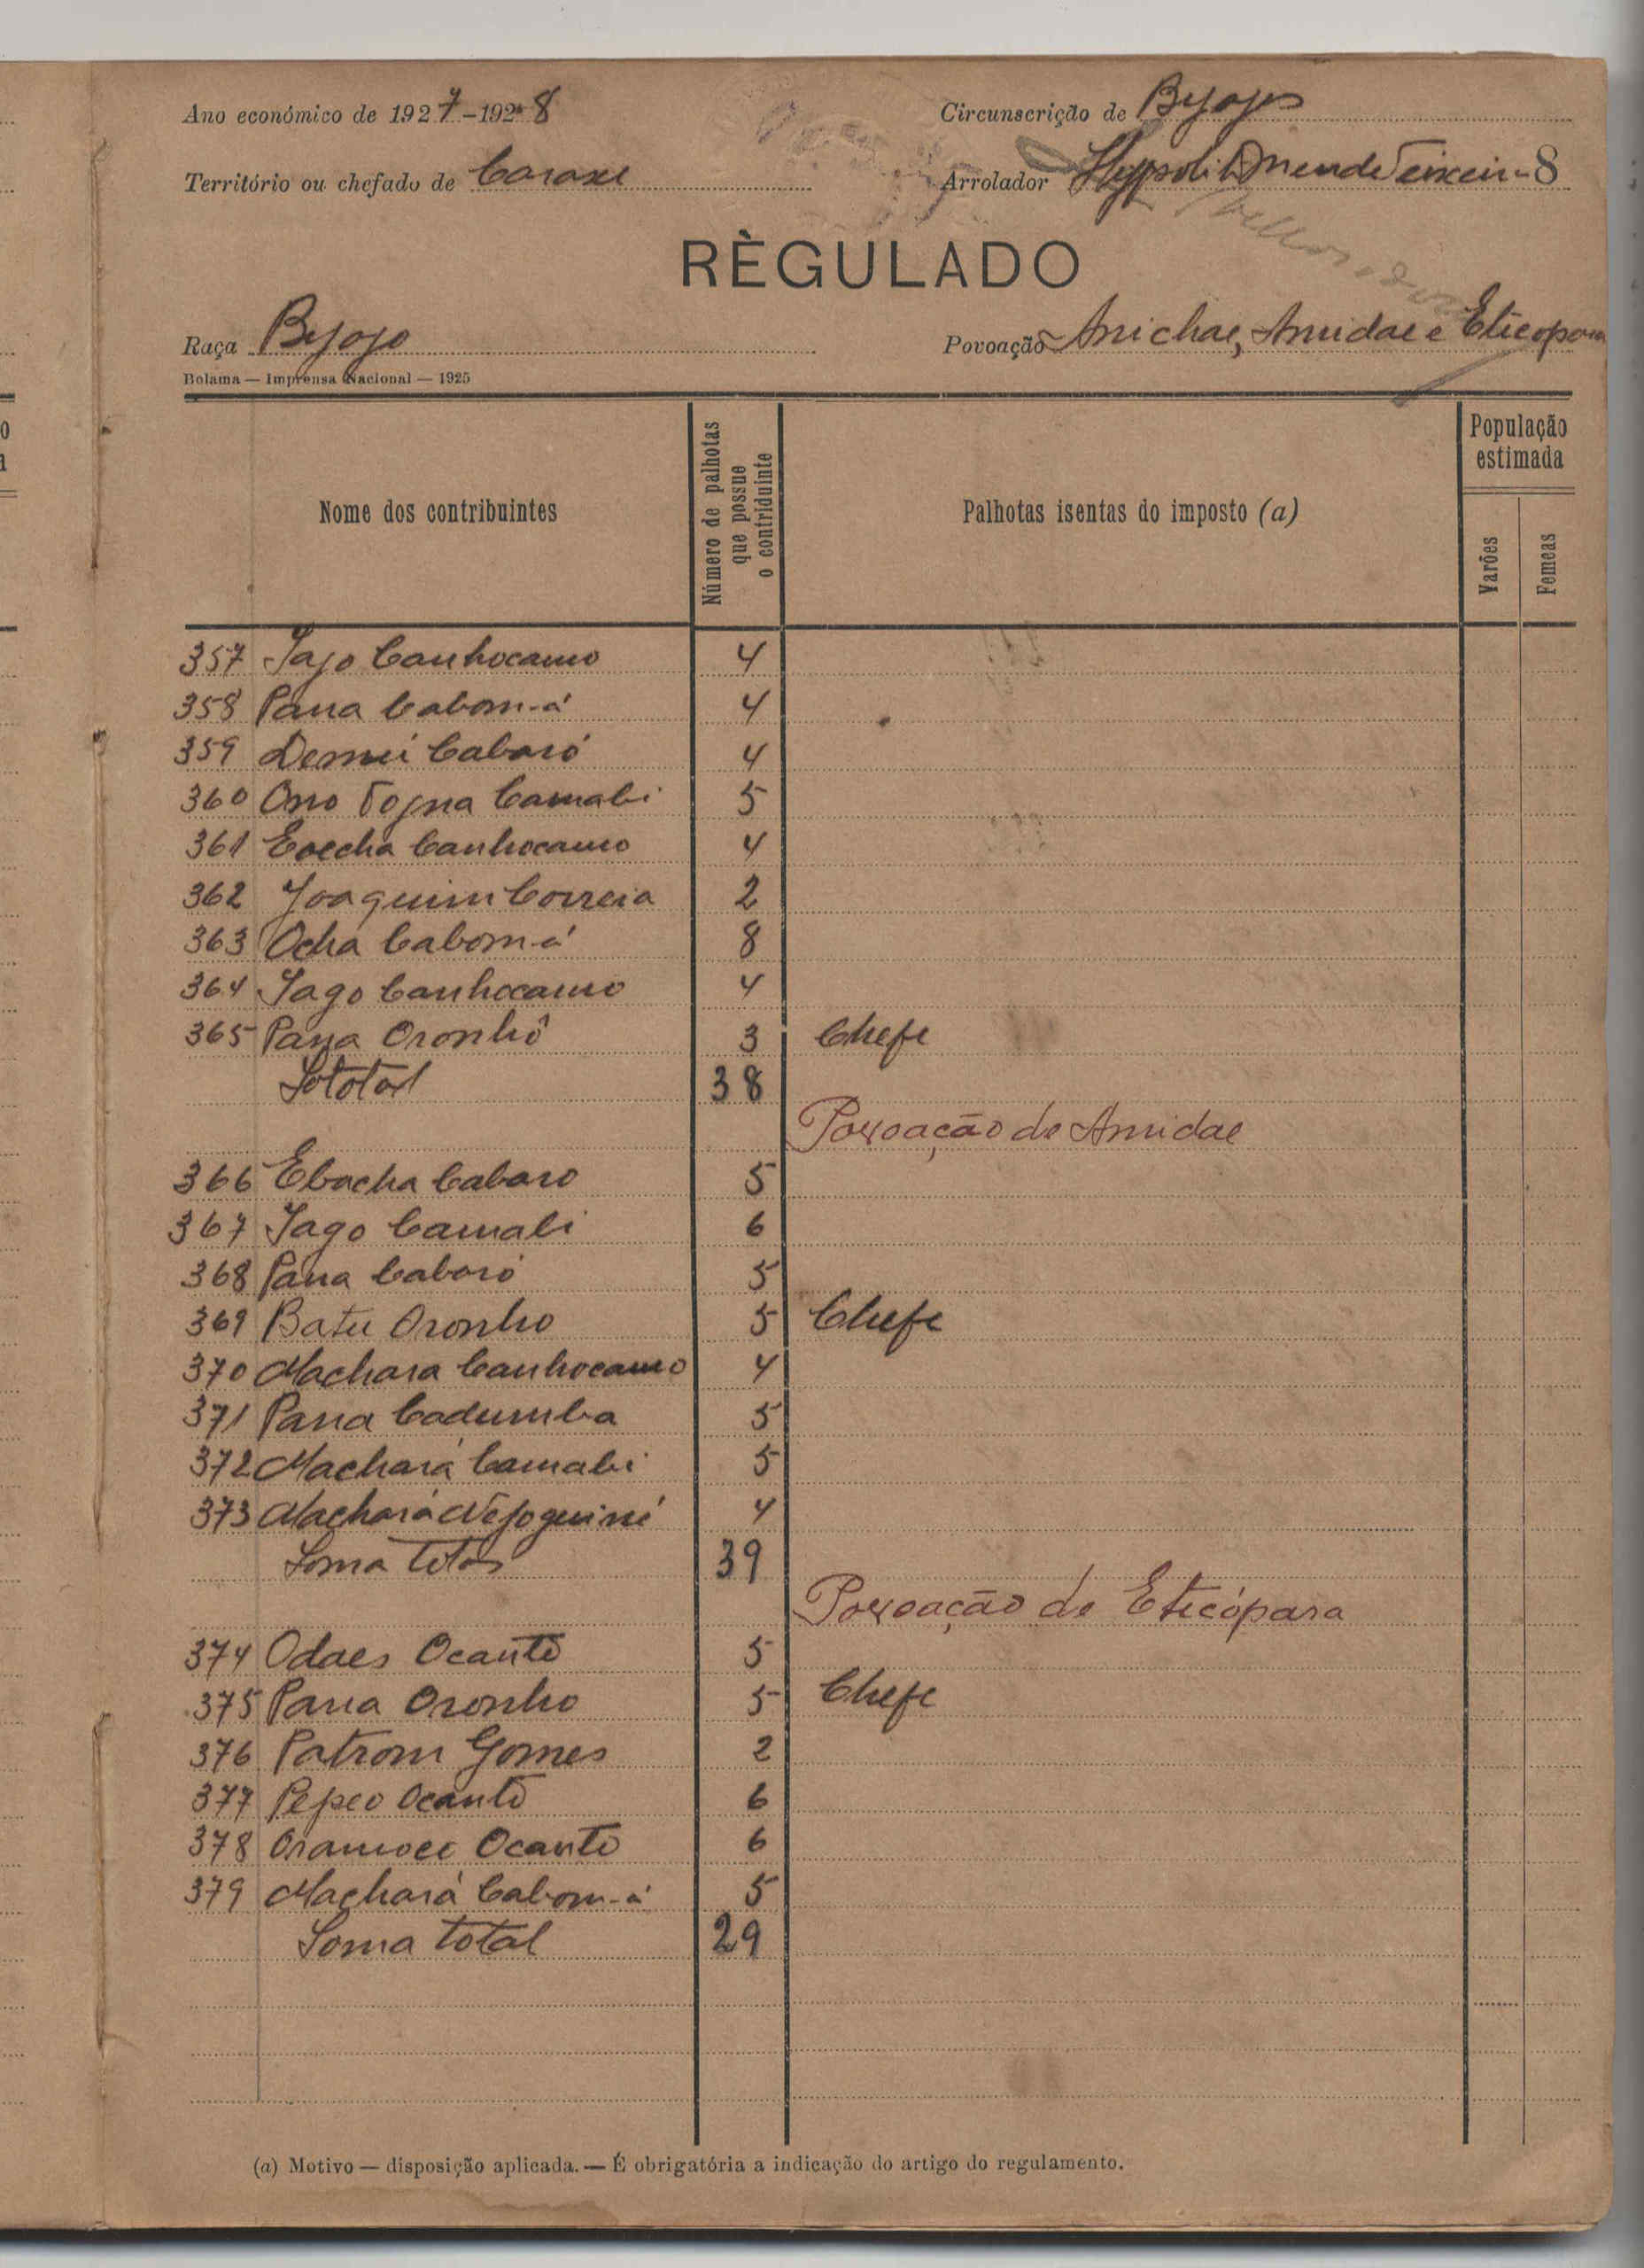 Ano económico de 1927-1928
Circunscrição de Byojos
Território ou chefado de Caraxe
Arrolador Hyppolito Mendes Teixeira 8
RÈGULADO
Raça Byojo
Povoação Anichae, Amidae e Eticopara
Bolama — Imprensa Nacional — 1925
Nome dos contribuintes
Número de palhotas que possue o contriduinte
Palhotas isentas do imposto (a)
População estimada
Varões
Femeas
357 Jago Canhocamo 4
358 Pana Cabom-á 4
359 Demui Cabaró 4
360 Ono Togna Camabi 5
361 Canhocamo 4
362 Joaquim Correia 2
363 Ocha Cabom-á 8
364 Jago Canhocamo 4
365 Pana Oronhô 3 Chefe
38
Povoação de Amidae
366 Ebocha Cabaro 5
367 Jago Camabi 6
368 Pana Cabaró 5
369 Batu Oronho 5 Chefe
370 Machara Canhocamo 4
371 Pana Cadumba 5
372 Machará Camabi 5
373 Machará 4
Soma total 39
Povoação de Eticópara
374 Odaes Ocanto 5
375 Pana Oronho 5 Chefe
376 Patrom Gomes 2
377 Pepeo Ocanto 6
378 Ocanto 6
379 Machará Cabom-á 5
Soma total 29
(a) Motivo — disposição aplicada. — É obrigatória a indicação do artigo do regulamento.